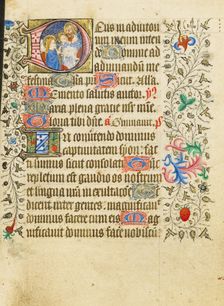 Deus in adiutori
um meum inten
de Domine ad
adiuvandum me
festina Gloria pri Sicut alla
Memento salutis auctor
Maria plena gratie
Gloria tibi dne
In convertendo dominus
captivitatem syon: fac
ti sumus sicut consolati
repletum est gaudio os nostrum
et lingua nostra in exultacione
dicent inter gentes: magnificavit
dominus facere cum eis Ma
gnificavit dominus facere nobiscu